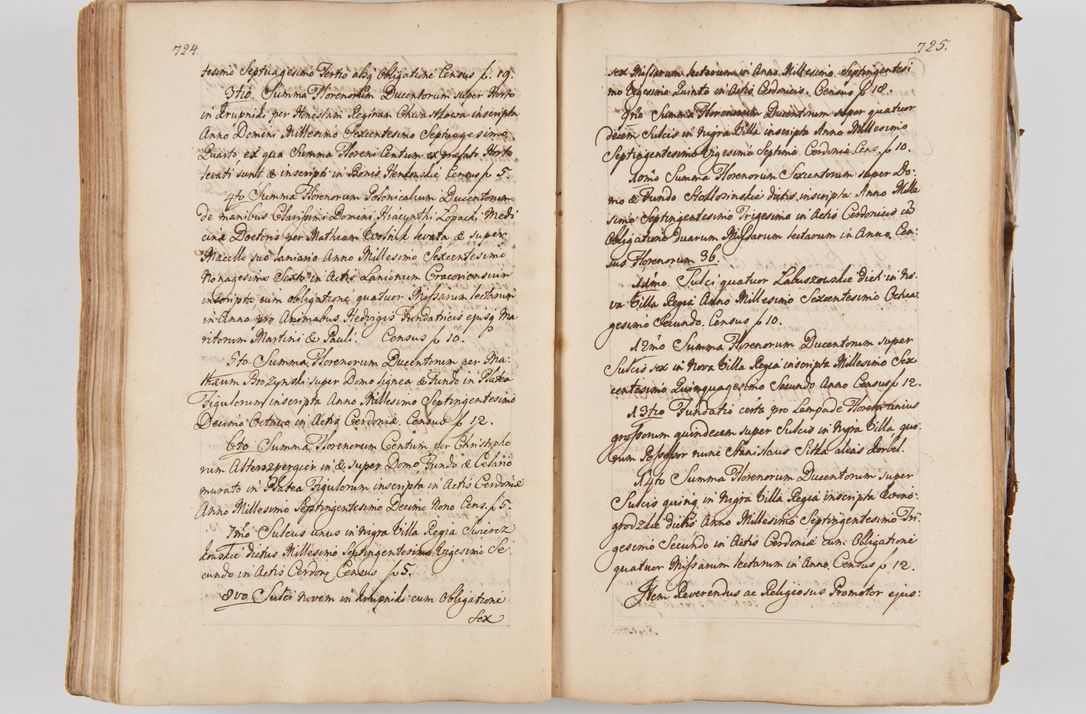 724.
tesimo Septuagesimo Tertio absq Obligatione Census f. 19.
3tio. Summa Florenorum Ducentorum super Horto
in Krupniki per Honestam Reginam inscripta
Anno Domini Millesimo Sexcentesimo Septuagesimo
Quarto ex qua Summa Floreni Centum ex praefato Horto
levati sunt & inscripti in Bonis Census f 5.
4to Summa Florenorum Polonicalium Ducentorum
de manibus Clarissimi Domini Hiacynthi Lopacki Medi
cinae Doctoris per Mathiam Wosnik levata & super
Macello suo laniario Anno Millesimo Sexcentesimo
Nonagesimo Sexto in Actis Lanionum Cracoviensium
inscripta cum obligatione quatuor Missarum lectarum
in Anno pro Animabus Hedvigis Fundatricis ejusq Ma
ritorum Martini & Pauli. Census f 10.
5to Summa Florenorum Ducentorum per Ma
thaeum Brozynski super Domo lignea & Fundo in Platea
Figulorum inscripta Anno Millesimo Septingentesimo
Decimo Octavo in Actis Cerdoniae. Census f 12.
6to Summa Florenorum Centum per Christopho
rum Alterszpergier in & super Domo Fundo & Celario
murato in Platea Figulorum inscripta in Actis Cerdoniae
Anno Millesimo Septingentesimo Decimo Nono Cens. f 5.
7mo Sulcus unus in Nigra Villa Regia Swiercz
kowskie dictus Millesimo Septingentesimo Vigesimo Se
cundo in Actis Cerdon, Census f 5.
8vo Sulci novem in Krupniki cum Obligatione
Sex
725.
sex Missarum lectarum in Anno Millesimo Septingentesi
mo Vigesimo Quinto in Actis Cerdonicis. Census f 18.
9no Summa Florenorum Ducentorum super quatuor
decem Sulcis in Nigra Villa inscripta Anno Millesimo
Septingentesimo Vigesimo Septimo Cerdonia Cens. f 10.
10mo Summa Florenorum Sexcentorum super Do
mo & Fundo dictis inscripta Anno Mille
simo Septingentesimo Trigesimo in Actis Cerdonicis cum
Obligatione duarum Missarum lectarum in Anno. Cen
sus Florenorum 36.
11mo Sulci quatuor Labuszowskie dicti in No
va Villa Regia Anno Millesimo Sexcentesimo Octua
gesimo Secundo. Census f 10.
12mo Summa Florenorum Ducentorum super
Sulcis sex in Nova Villa Regia inscripta Millesimo Sex
centesimo Quinquagesimo Secundo Anno Census f 12.
13tio Fundatio certa pro Lampade Floreni unius
grossorum quindecem super Sulcis in Nigra Villa quo
rum Possessor nunc Stanislaus Sitka alias Korbel.
14to Summa Florenorum Ducentorum super
Sulcis quinq in Nigra Villa Regia inscripta
grodzkie dictis Anno Millesimo Septingentesimo Tri
gesimo Secundo in Actis Cerdoniae cum Obligatione
quatuor Missarum lectarum in Anno. Census f 12.
Item Reverendus ac Religiosus Promotor ejus: